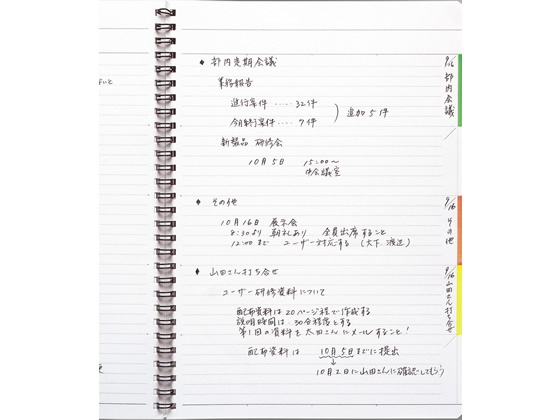 ◆ 部内定期会議
業務報告
進行案件 ‥‥‥ 32件
今月終了案件 ‥‥ 7件
追加5件
新製品 研修会
10月5日 15:00〜
中会議室
◆ その他
10月16日 展示会
8:30より 朝礼あり 全員出席すること
12:00まで ユーザー対応する (大下、渡辺)
◆ 山田さん打ち合せ
ユーザー研修資料について
配布資料は20ページ程で作成する
説明時間は、30分程度とする
第1回の資料を太田さんにメールすること!
配布資料は 10月5日までに提出
10月2日に山田さんに確認してもらう
9/16 部内会議
9/16 その他
9/16 山田さん打ち合せ